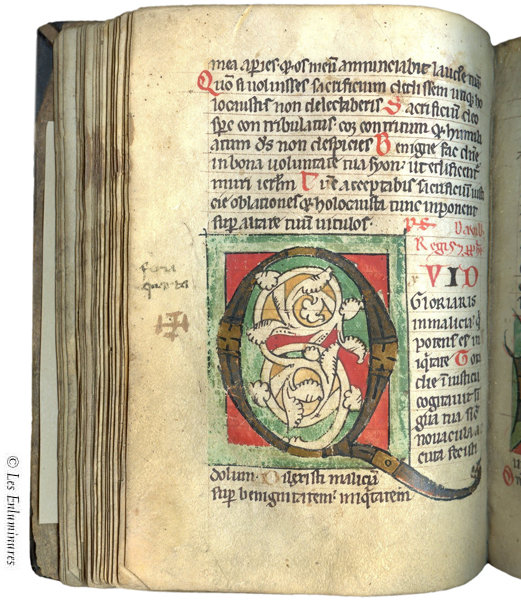 mea ap̄ies· ⁊ os meū annunciabit laudē tuā·
Quōs si voluisses sacrificium dedissem utiq; ho
locaustis non delectaberis· Sacrificiū deo
sp̄c contribulatus· coꝛ contritum ⁊ humili
atum d̄s non despicies· Benigne fac dn̄e
in bona voluntate tua syon· ut edificent̄
muri ierl̄m· Tūc acceptabis sacrificiū iusti
cie oblationes ⁊ holocausta tunc inponent
sup̄ altare tuū vitulos·
ps·
Regis
VID
GLORIARIS
in malicia· q̄
potens es in
iq̄tate· Tota
die iniusticiā
cogitavit lin
gua tua· sic̄
novacula a
cuta fecisti
dolum· Dilexisti maliciā
sup̄ benignitatem· iniq̄tatem
feria
quarta
© Les Enluminures